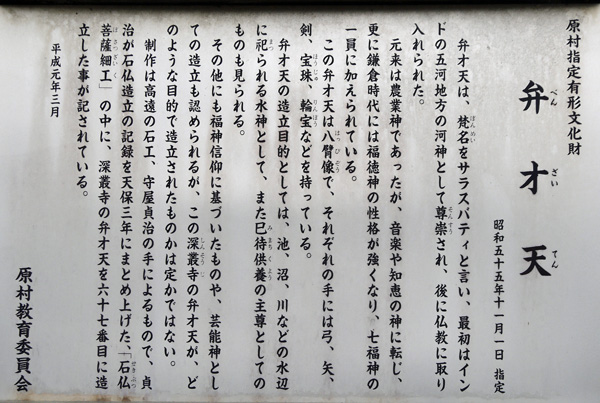 原村指定有形文化財
弁才天
昭和五十五年十一月一日 指定
弁才天は、梵名をサラスバティと言い、最初はイン
ドの五河地方の河神として尊崇され、後に仏教に取り
入れられた。
元来は農業神であったが、音楽や知恵の神に転じ、
更に鎌倉時代には福徳神の性格が強くなり、七福神の
一員に加えられている。
この弁才天は八臂像で、それぞれの手には弓、矢、
剣、宝珠、輪宝などを持っている。
弁才天の造立目的としては、池、沼、川などの水辺
に祀られる水神として、また巳待供養の主尊としての
ものも見られる。
その他にも福神信仰に基づいたものや、芸能神とし
ての造立も認められるが、この深叢寺の弁才天が、ど
のような目的で造立されたものかは定かではない。
制作は高遠の石工、守屋貞治の手によるもので、貞
治が石仏造立の記録を天保三年にまとめ上げた、「石仏
菩薩細工」の中に、深叢寺の弁才天を六十七番目に造
立した事が記されている。
平成元年三月
原村教育委員会